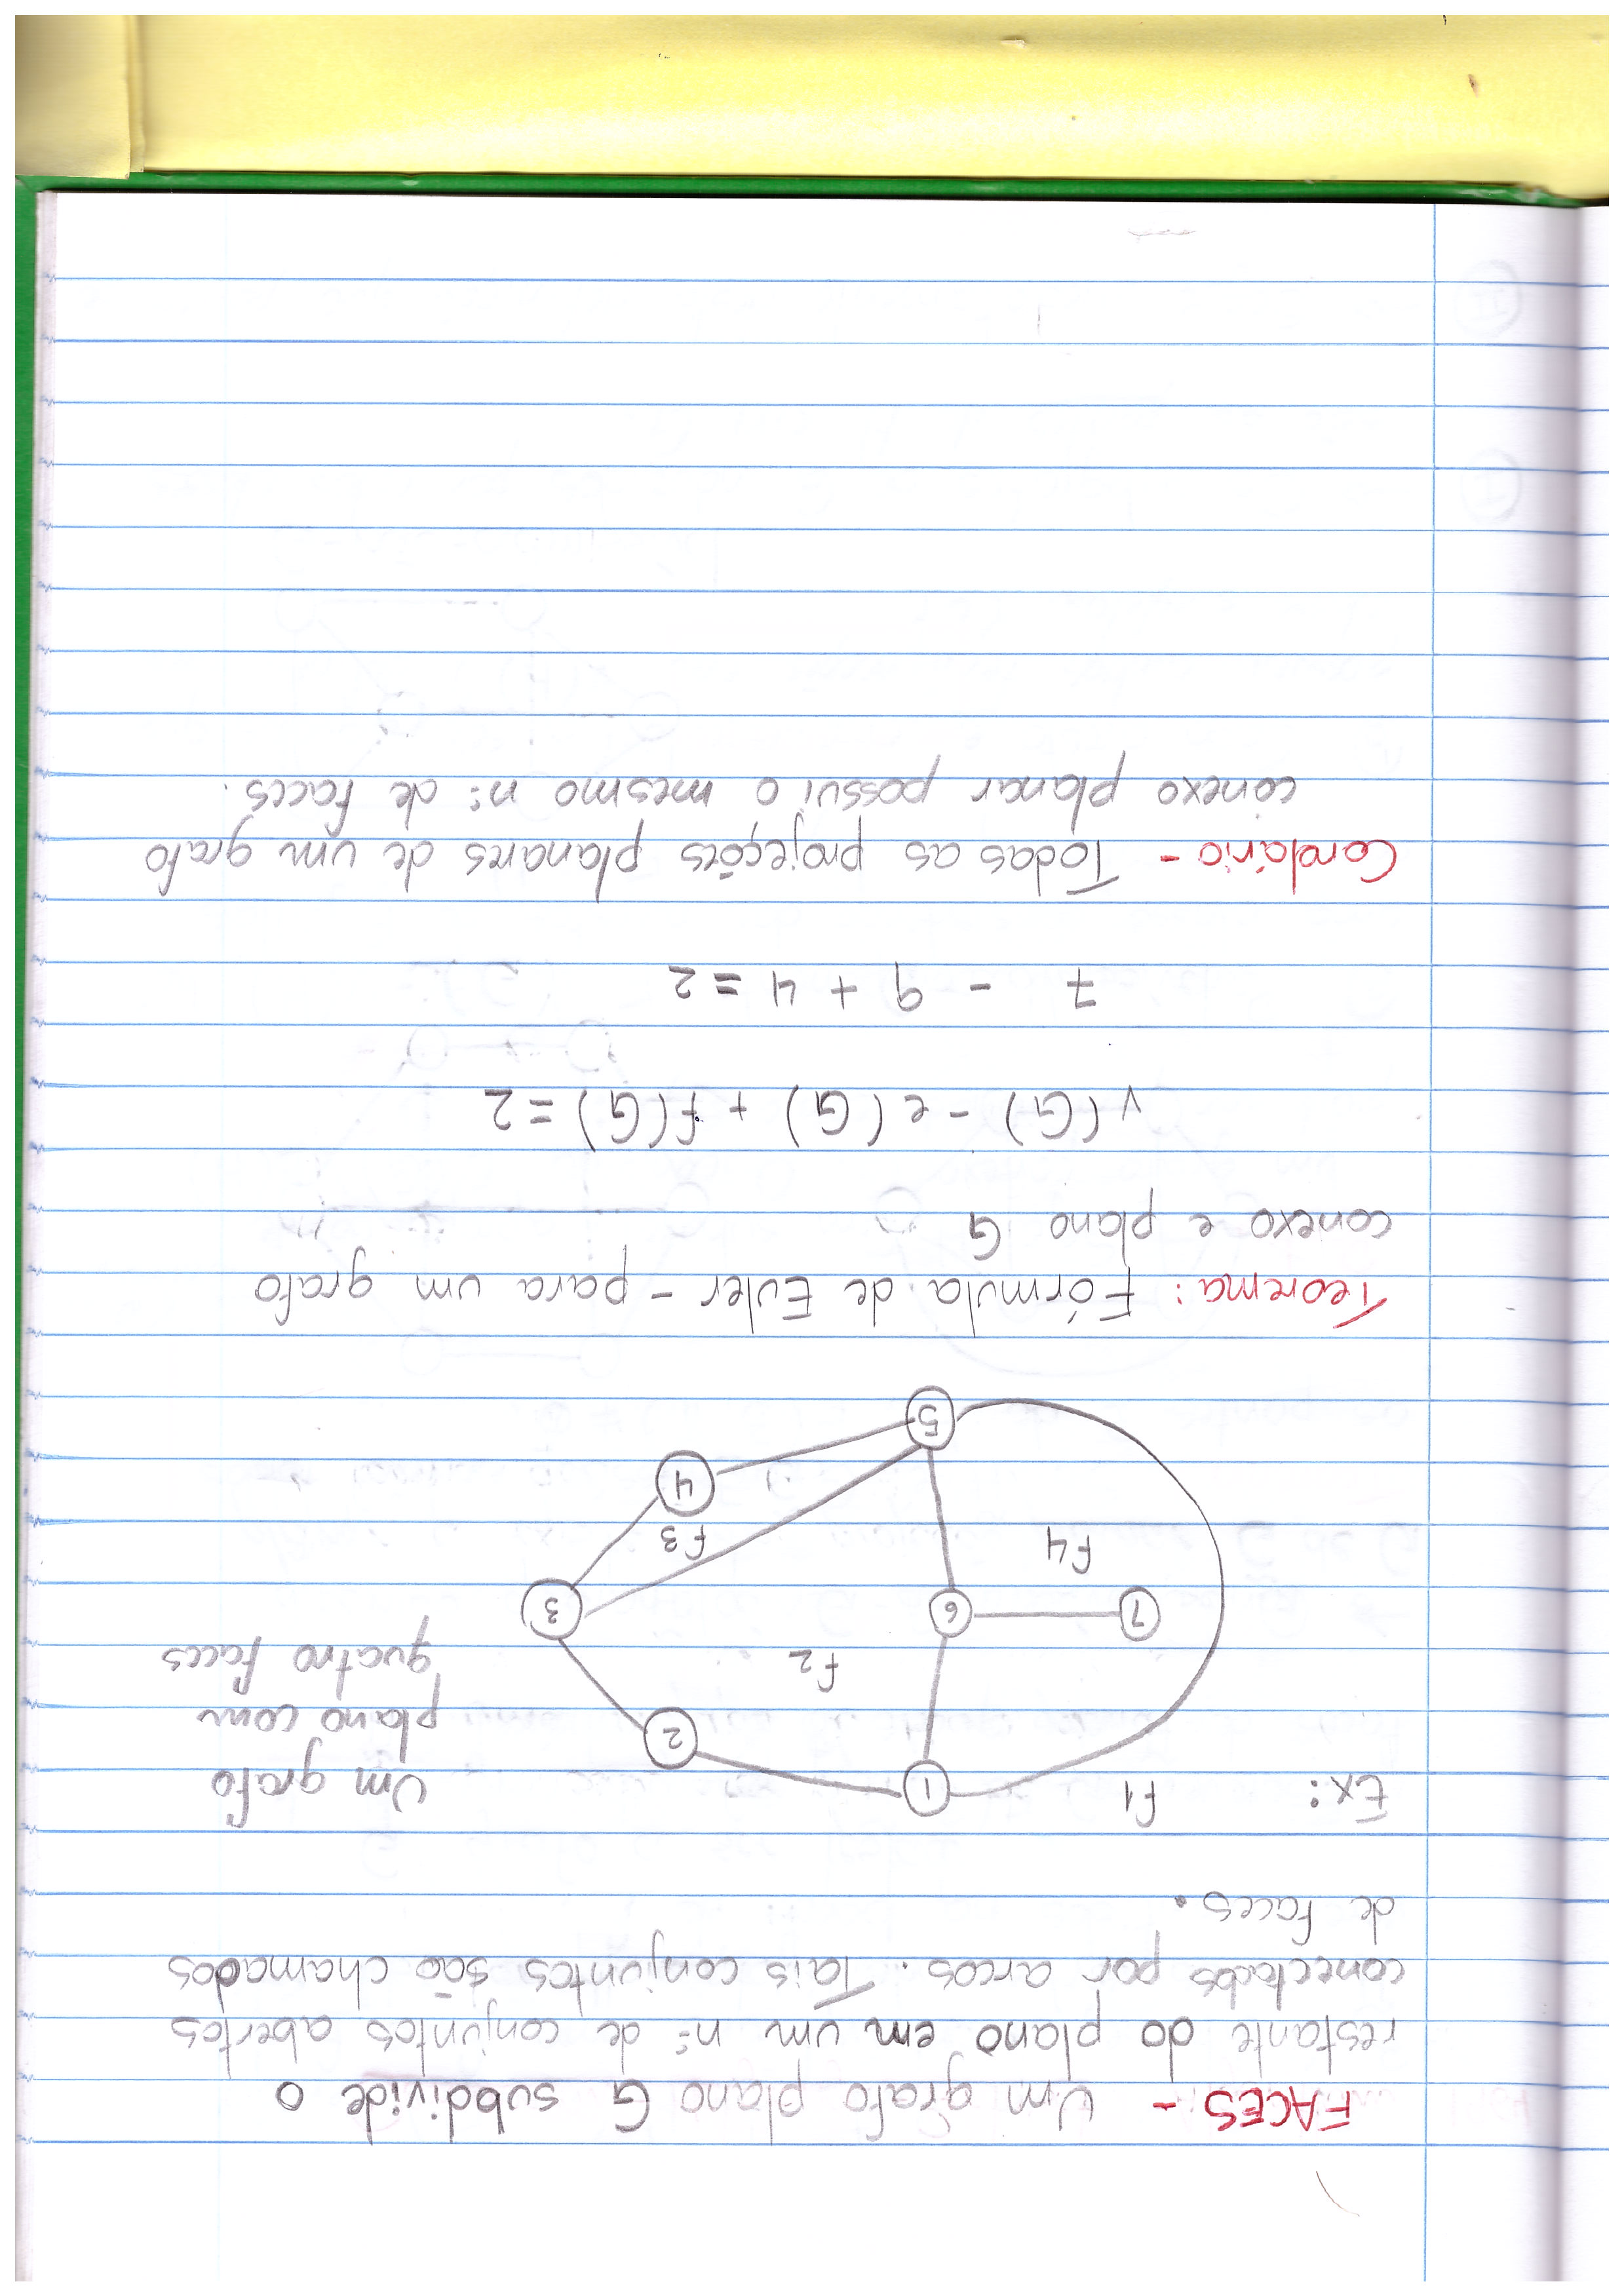 FACES - Um grafo plano G subdivide o
restante do plano em um nº de conjuntos abertos
conectados por arcos. Tais conjuntos são chamados
de faces.
Ex: f1 1 Um grafo
2 plano com
f2 quatro faces
7 6 3
f4 f3
4
5
Teorema: Fórmula de Euler - para um grafo
conexo e plano G
v(G) - e(G) + f(G) = 2
7 - 9 + 4 = 2
Corolário - Todas as projeções planares de um grafo
conexo planar possui o mesmo nº de faces.